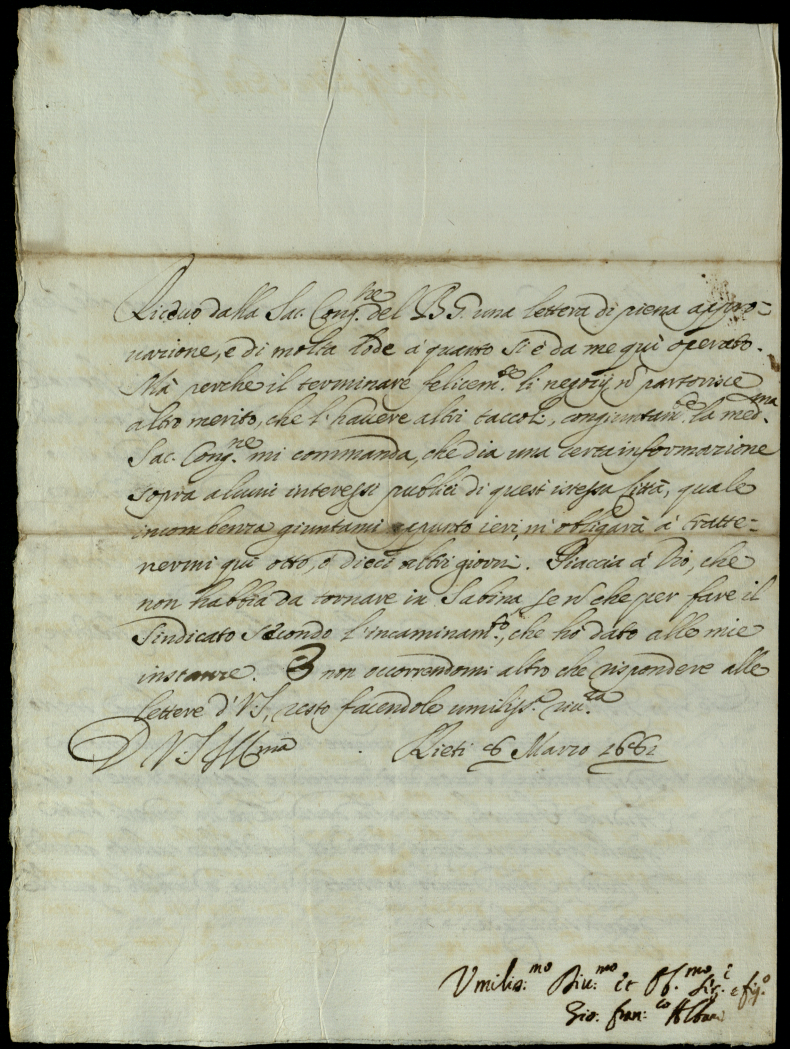 Riceuo dalla Sac. Cong.ne del B. G. una lettera di piena appro=
uazione, e di molta lode à quanto si è da me quì operato.
Mà perche il terminare felicem.te li negozij nõ partorisce
altro merito, che l'hauere altri taccoli, congiuntam.te la med.ma
Sac. Cong.ne mi commanda, che dia una certa informazione
sopra alcuni interessi publici di quest'istessa Città, quale
incombenza giuntami appunto ieri, m'obligarà à tratte=
nermi quì otto, ò dieci altri giorni. Piaccia à Dio, che
non habbia da tornare in Sabina se nõ che per fare il
Sindicato secondo l'incaminam.to, che hò dato alle mie
instanze. E non occorrendomi altro che rispondere alle
lettere d'V.S., resto facendole umiliss.a riu.za
D V.S. Ill.ma Rieti 6 Marzo 1661
Vmilis.mo Diu.mo et Obb.mo Ser.e e fig.o
Gio. Fran.co Albani